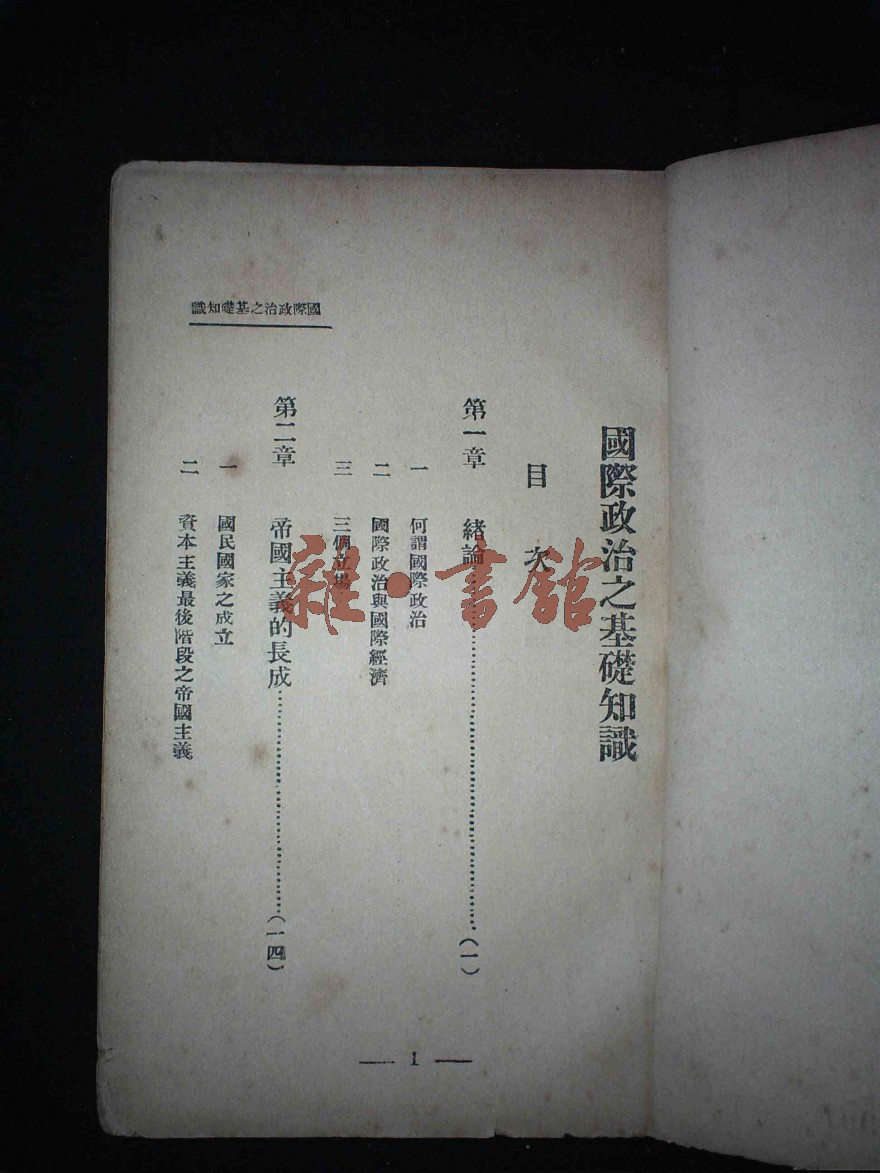 國際政治之基礎知識
國際政治之基礎知識
目次
第一章 緒論……(一)
一 何謂國際政治
二 國際政治與國際經濟
三 三個立場
第二章 帝國主義的長成……(一四)
一 國民國家之成立
二 資本主義最後階段之帝國主義
— 1 —
雜·書館